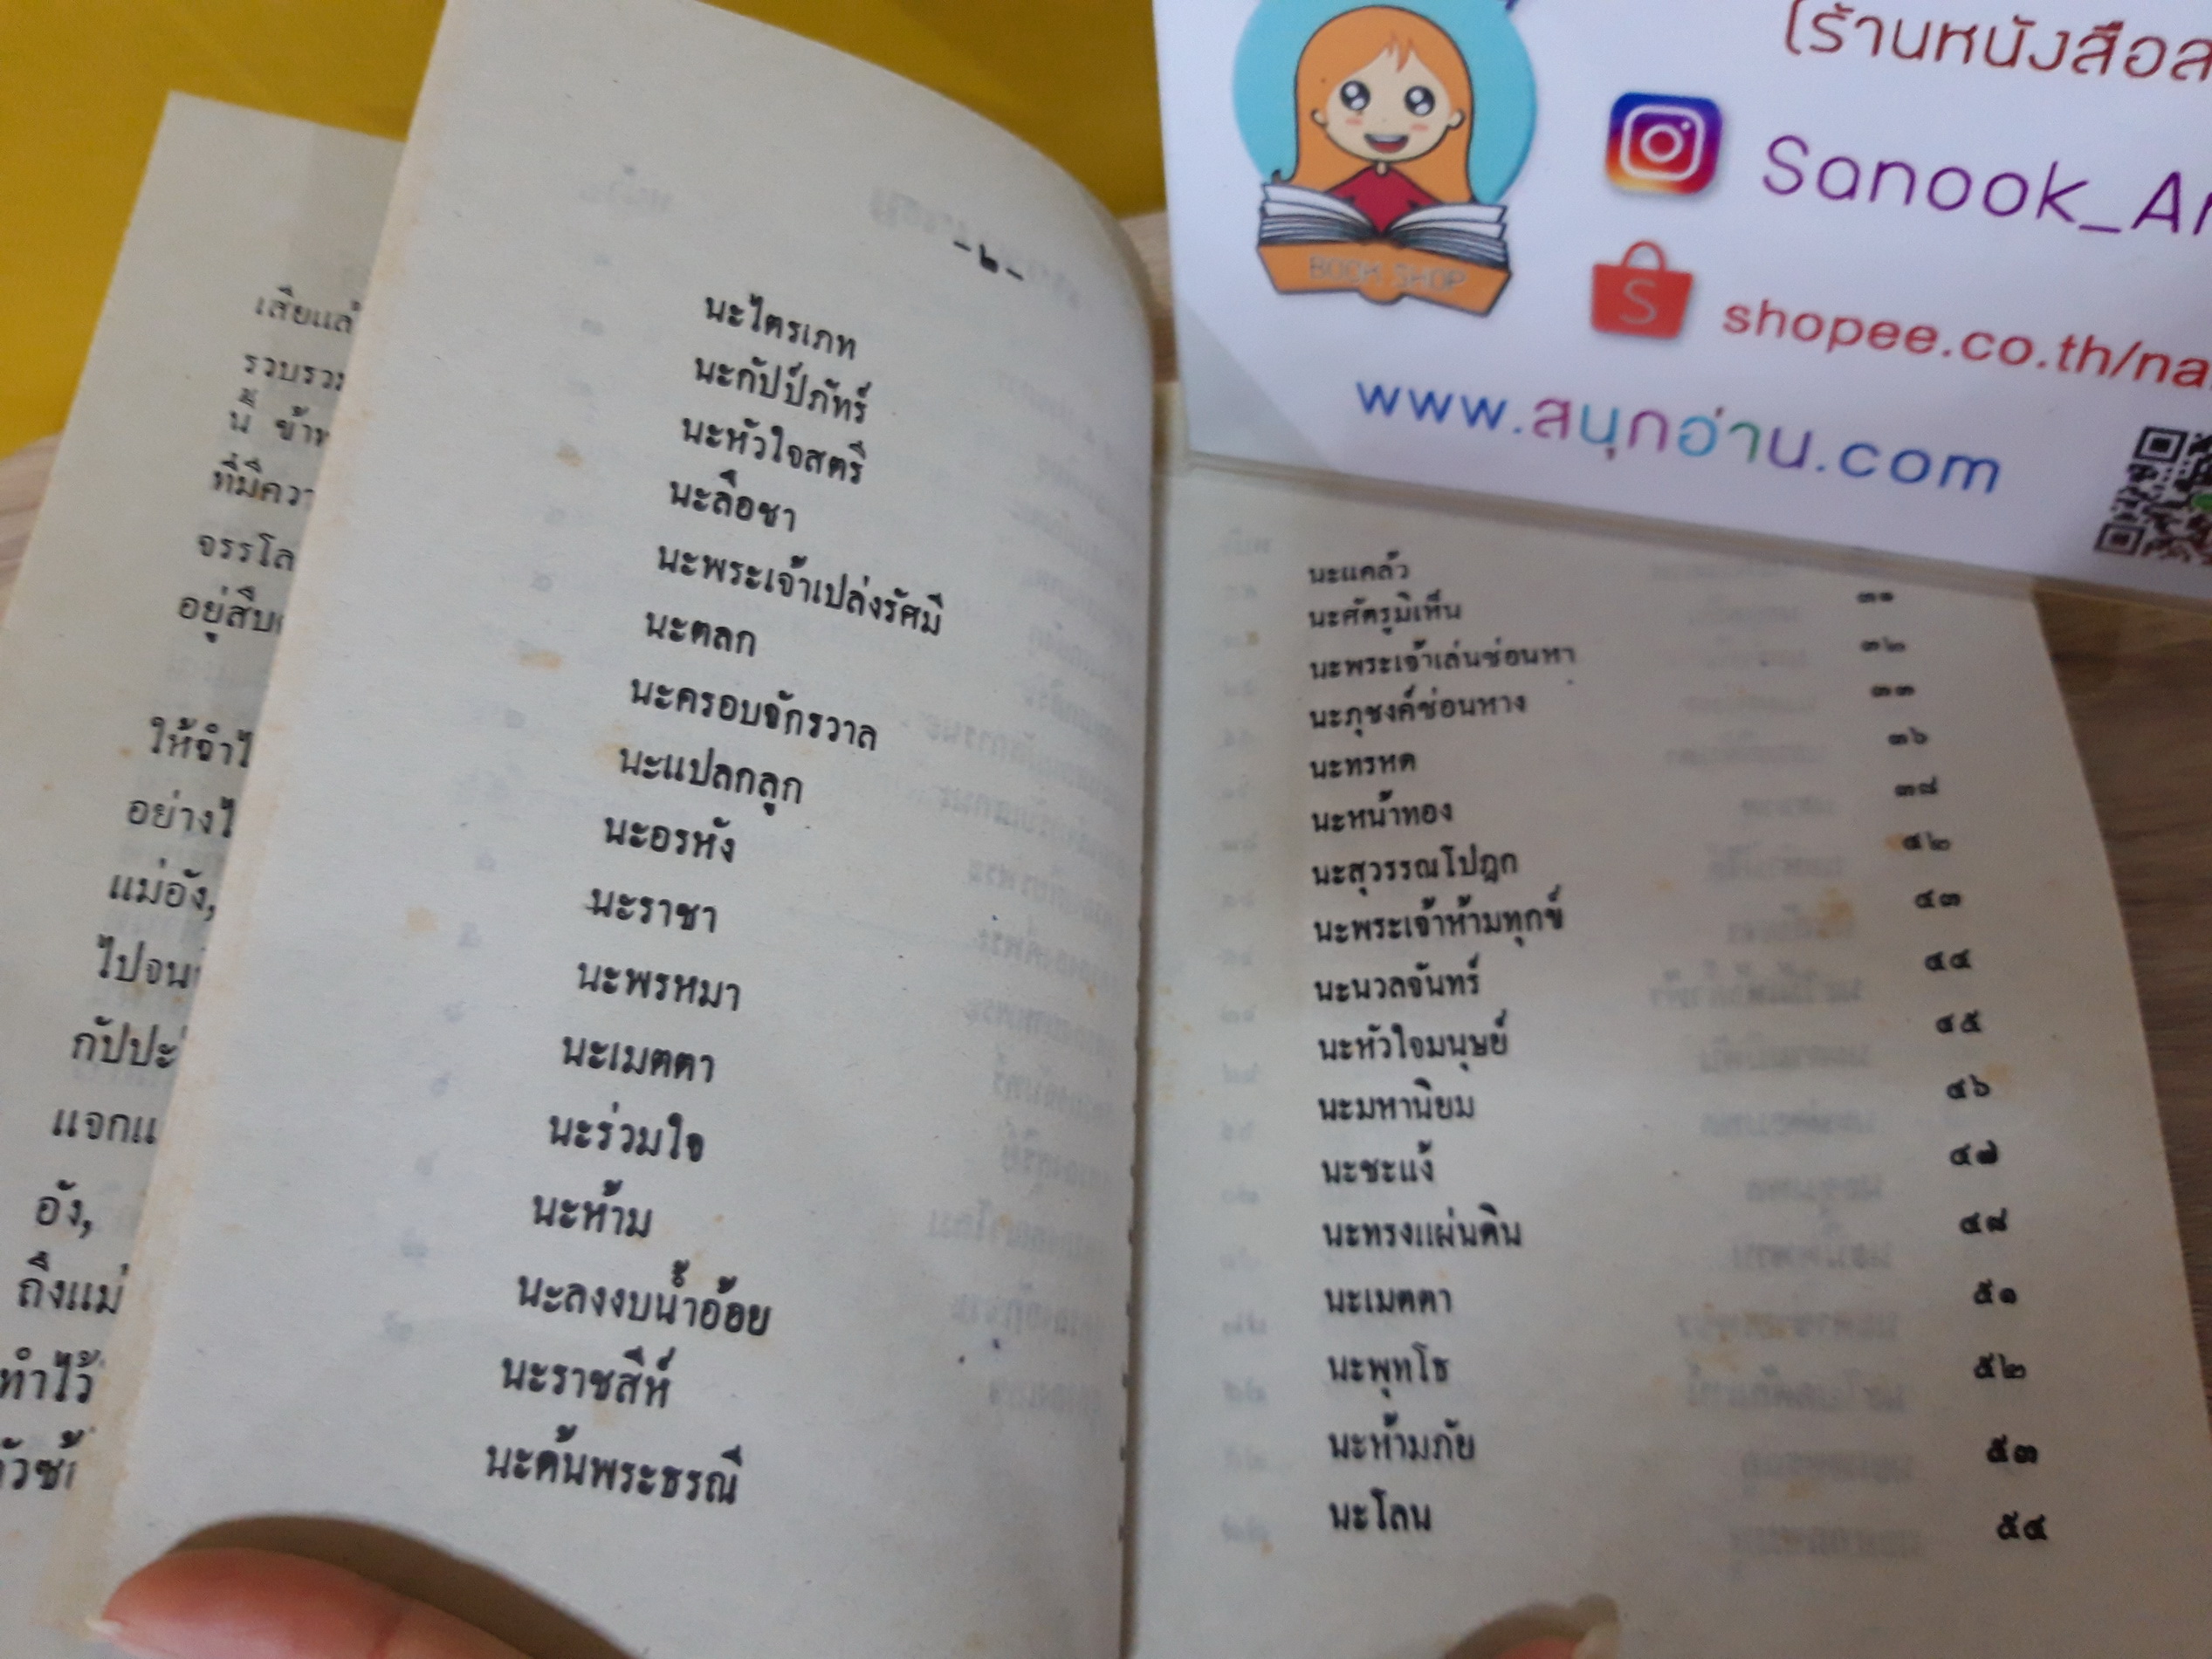 เสียแล้
รวบรวม
นี้ ข้าพ
ที่มีควา
จรรโล
อยู่สืบ
ให้จำไ
อย่างไ
แม่อัง,
ไปจน
กัปปะ
แจกแ
อัง,
ถึงแม่
ทำไว้
-๒-
นะไตรเภท
นะกัปป์ภัทร์
นะหัวใจสตรี
นะลือชา
นะพระเจ้าเปล่งรัศมี
นะตลก
นะครอบจักรวาล
นะแปลกลูก
นะอรหัง
นะราชา
นะพรหมา
นะเมตตา
นะร่วมใจ
นะห้าม
นะลงงบน้ำอ้อย
นะราชสีห์
นะด้นพระธรณี
(ร้านหนังสือส
BOOK SHOP
Sanook_Ar
shopee.co.th/na
www.สนุกอ่าน.com
นะแคล้ว
นะศัตรูมิเห็น ๓๑
นะพระเจ้าเล่นซ่อนหา ๓๒
นะภุชงค์ซ่อนหาง ๓๓
นะทรหด ๓๖
นะหน้าทอง ๓๘
นะสุวรรณโปฎก ๔๒
นะพระเจ้าห้ามทุกข์ ๔๓
นะนวลจันทร์ ๔๔
นะหัวใจมนุษย์ ๔๕
นะมหานิยม ๔๖
นะชะแง้ ๔๗
นะทรงแผ่นดิน ๔๙
นะเมตตา ๕๑
นะพุทโธ ๕๒
นะห้ามภัย ๕๓
นะโลน ๕๔